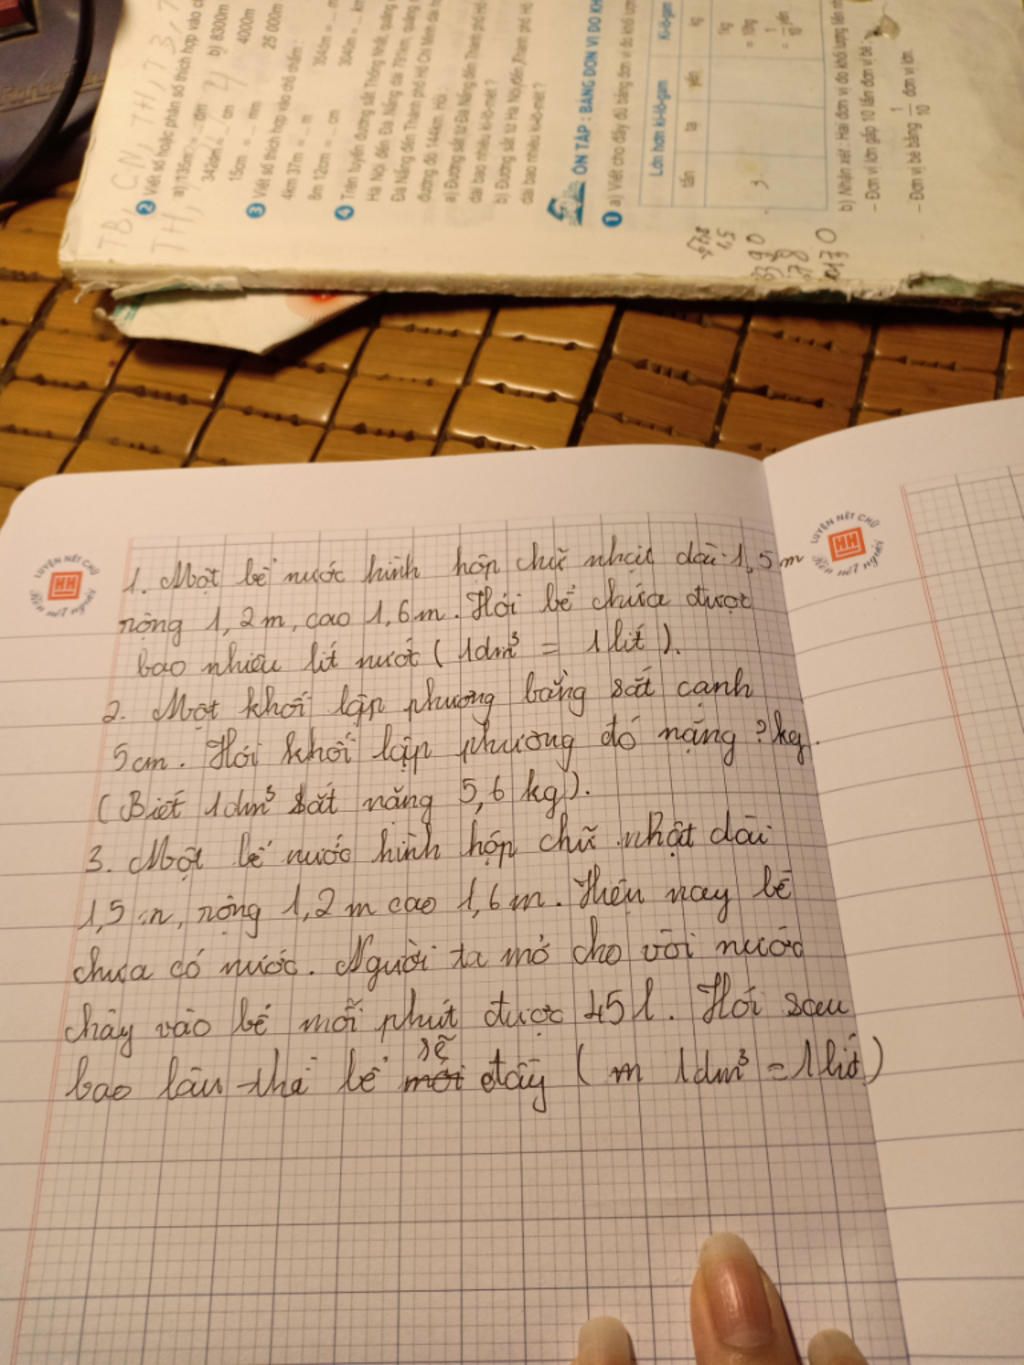 TB, CN, TH, T3, 7
TH, 7 4
2 Viết số hoặc phân số thích hợp vào ch
a) 135m = ... dm b) 8300m
342dm = ... cm 4000m
15cm = ... mm 25 000m
3 Viết số thích hợp vào chỗ chấm :
4km 37m = ... m 354dm = ... m
8m 12cm = ... cm 3040m = ... km
4 Trên tuyến đường sắt Thống Nhất, quãng
Hà Nội đến Đà Nẵng dài 791km, quãng
Đà Nẵng đến Thành phố Hồ Chí Minh dài hơ
đường đó 144km. Hỏi :
a) Đường sắt từ Đà Nẵng đến Thành phố Hồ
dài bao nhiêu ki-lô-mét ?
b) Đường sắt từ Hà Nội đến Thành phố Hồ
dài bao nhiêu ki-lô-mét ?
ÔN TẬP : BẢNG ĐƠN VỊ ĐO KH
1 a) Viết cho đầy đủ bảng đơn vị đo khối lượn
Lớn hơn ki-lô-gam Ki-lô-gam
tấn tạ yến kg
1kg
= 10hg
= 1/10 yến
b) Nhận xét : Hai đơn vị đo khối lượng liền nh
– Đơn vị lớn gấp 10 lần đơn vị bé ;
– Đơn vị bé bằng 1/10 đơn vị lớn.
LUYỆN NÉT CHỮ
HH
Rèn nết người
LUYỆN NÉT CHỮ
HH
Rèn nết người
1. Một bể nước hình hộp chữ nhật dài 1,5m
rộng 1,2m, cao 1,6m. Hỏi bể chứa được
bao nhiêu lít nước ( 1dm³ = 1 lít ).
2. Một khối lập phương bằng sắt cạnh
5cm. Hỏi khối lập phương đó nặng ? kg.
( Biết 1dm³ sắt nặng 5,6 kg ).
3. Một bể nước hình hộp chữ nhật dài
1,5m, rộng 1,2m cao 1,6m. Hiện nay bể
chưa có nước. Người ta mở cho vòi nước
chảy vào bể mỗi phút được 45 l. Hỏi sau
bao lâu thì bể mới sẽ đầy ( m 1dm³ = 1 lít )